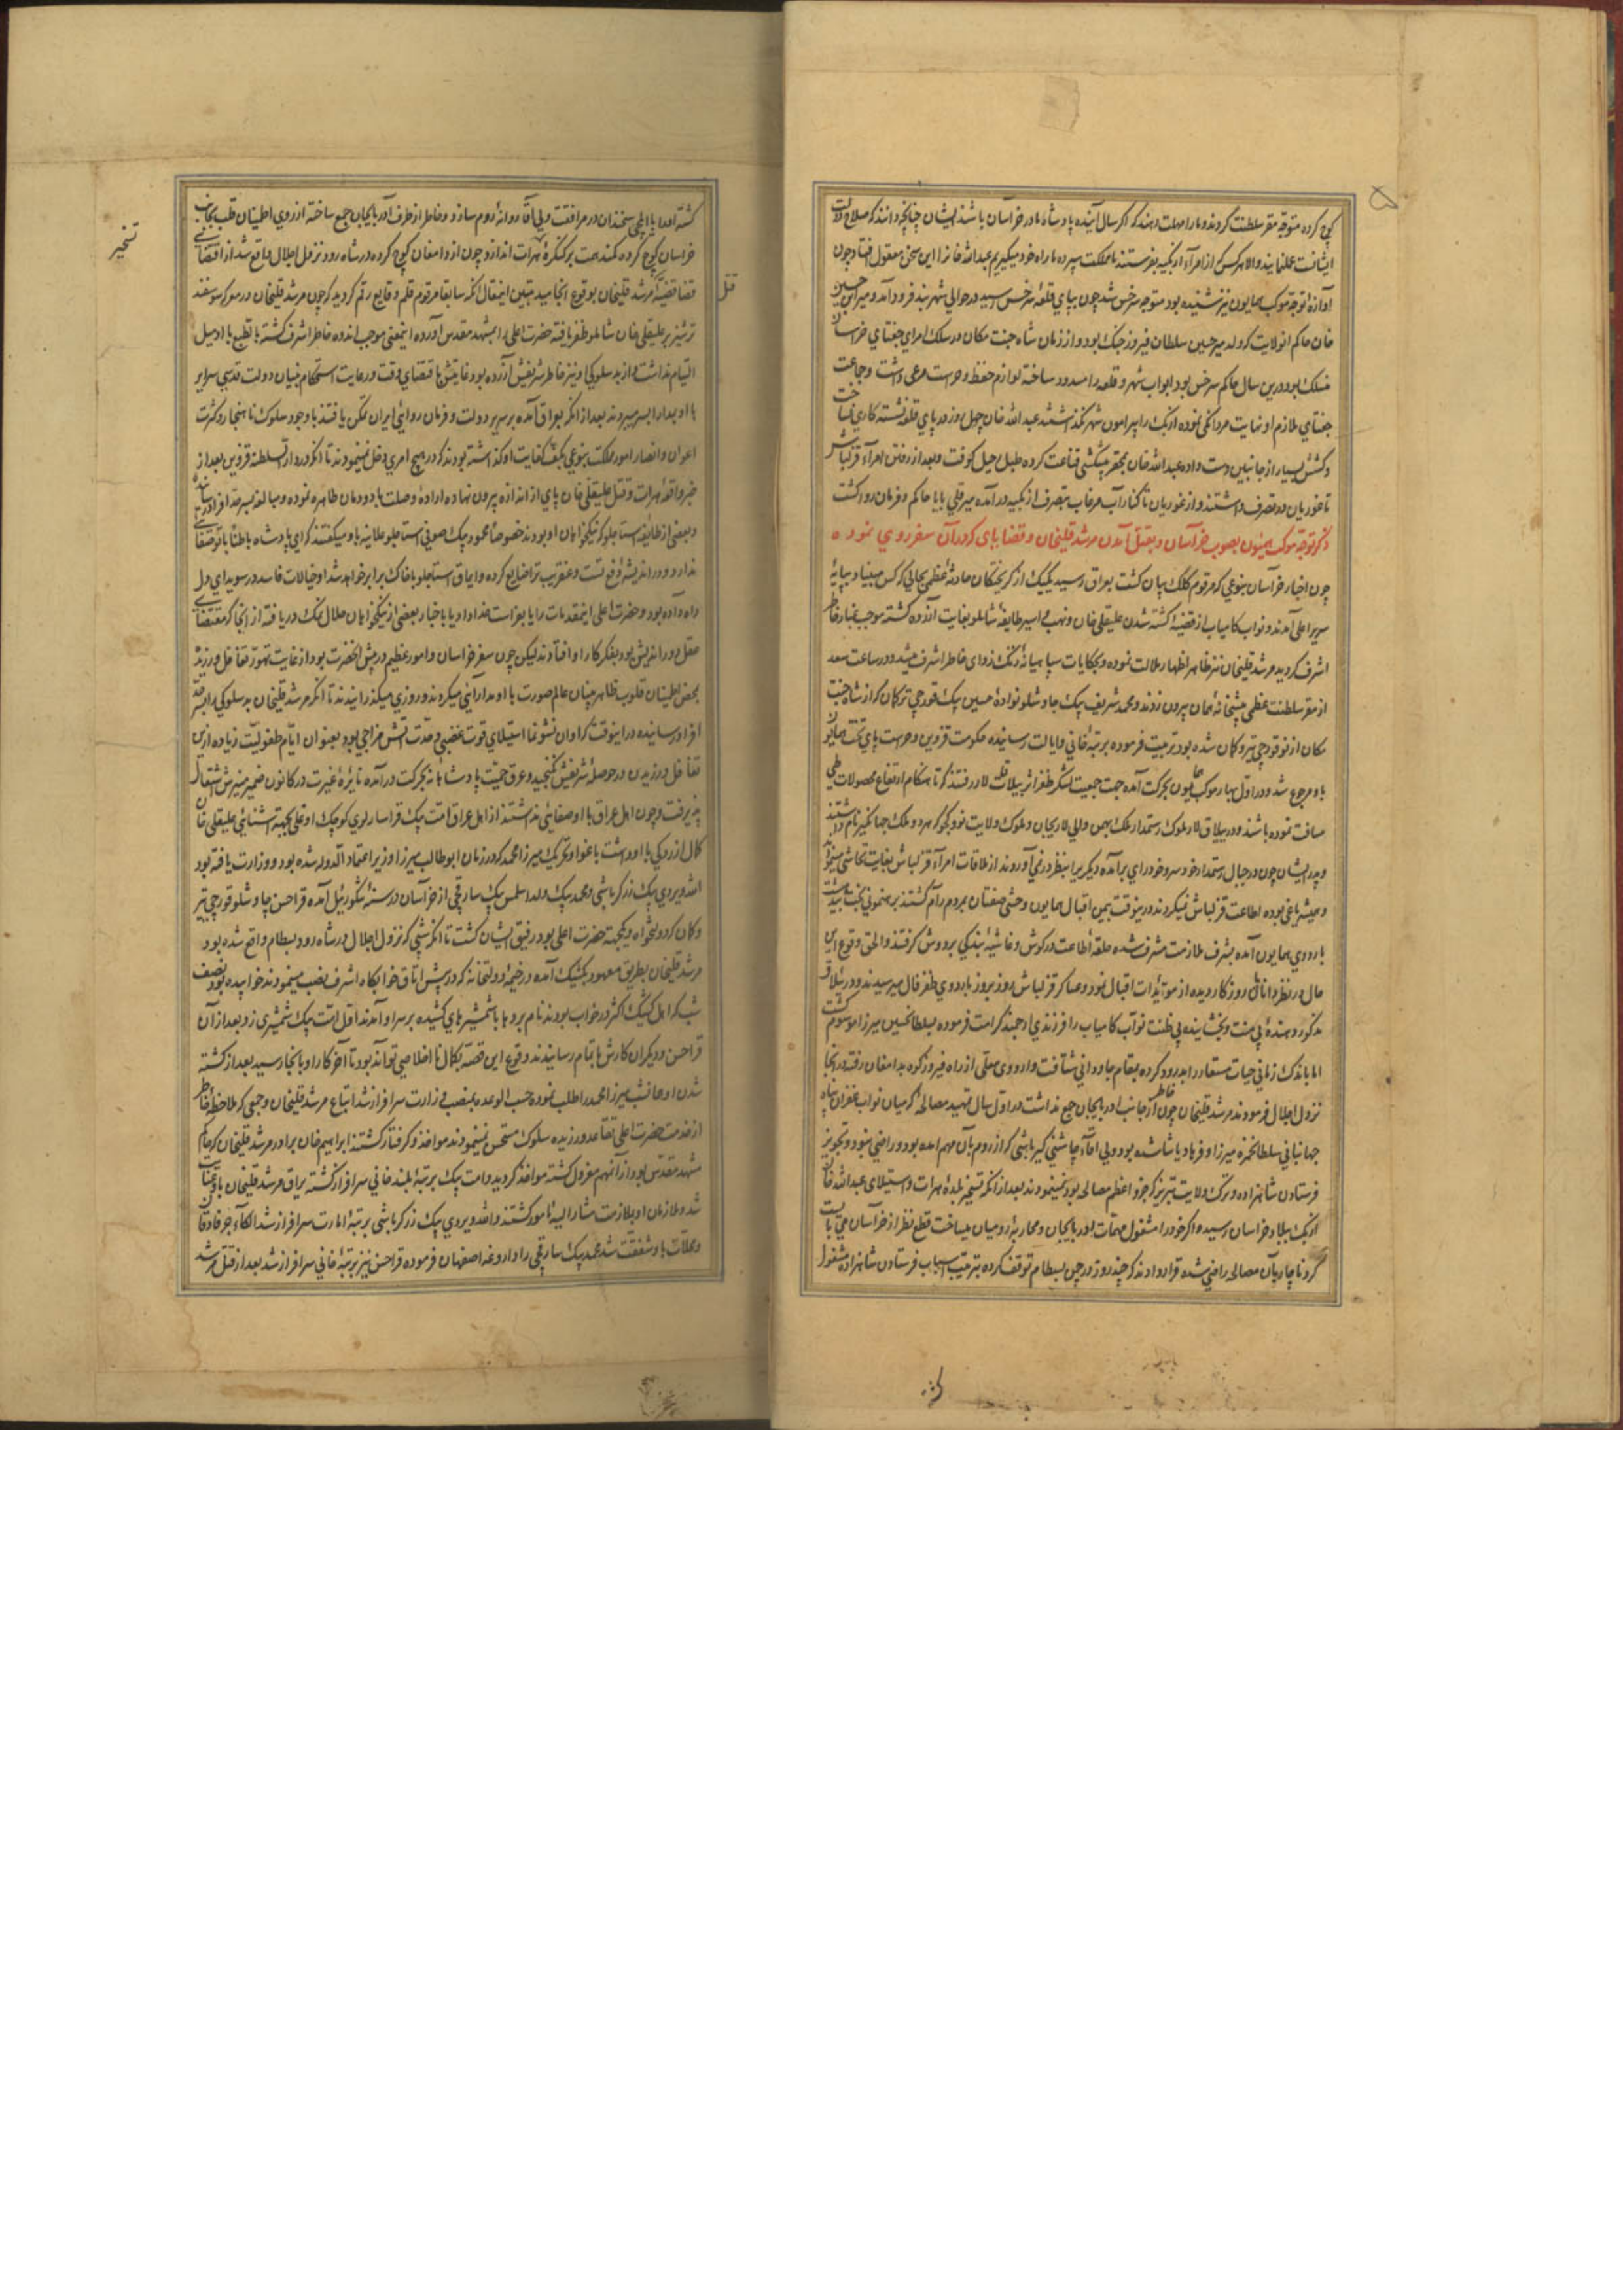 کوچ کرده متوجه مقر سلطنت گردند و ما را مهلت دهند که اگر سال آینده پادشاه ما در خراسان باشد ایشان چنانچه دانند که صلاح دولت
ایشانست عمل نمایند والا هر کس که از امرآء اوزبکیه بفرستند ما مملکت سپرده ما راه خود میگیریم عبدالله خانرا این سخن معقول افتاد چون
آوازه توجه موکب همایون نیز شنیده بود متوجه سرخس شد چون بپای قلعه سرخس رسید در حوالی شهر بند فرود آمد و میر حسین
خان حاکم آنولایت که ولد میر حسین سلطان فیروز جنک بود و از زمان شاه جنت مکان در سلک امرای جغتای خراسان
منسلک بود و درین سال حاکم سرخس بود ابواب شهر و قلعه را مسدود ساخته لوازم حفظ و حراست مرعی داشت و جماعت
جغتای ملازم او نهایت مردانگی نموده اوزبک را پیرامون شهر نگذاشتند عبدالله خان چهل روز در پای قلعه نشسته کاری نساخت
و کشش بسیار از جانبین دست داده عبدالله خان بمحقر پیشکشی قناعت کرده طبل رحیل کوفت و بعد از رفتن امرآء قزلباش
تا غوریان در تصرف داشتند و از غوریان تا کنار آب مرغاب بتصرف ازبکیه درآمده میر قلی بابا حاکم و فرمانروا گشت
ذکر توجه موکب همیون بصوب خراسان و بقتل آمدن مرشد قلیخان و قضایای که در آن سفر روی نمود
چون اخبار خراسان بنوعی که مرقوم کلک بیان گشت بعراق رسید یکیک از گریختکان حادثه عظمی بحالی که کس مبیناد بپایه
سریر اعلی آمدند و نواب کامیاب از قضیه کشته شدن علیقلی خان و نهب و اسیر طایفه شاملو بغایت آزرده گشته موجب غبار خاطر
اشرف گردید مرشد قلیخان نیز ظاهرا اظهار ملالت نموده و بحکایات سپاهیانه زنک زدای خاطر اشرف میشد و در ساعت سعد
از مقر سلطنت عظمی پیشخانه همان بیرون زدند و محمد شریف بیک چاوشلو نواده حسین بیک قورچی ترکان که از شاه جنت
مکان از نو قورچی تیر و کمان شده بود تربیت فرموده برتبه خانی و ایالت رسانیده حکومت قزوین و حراست پای تخت همایون
باو مرجوع شد و در اول بهار موکب همایون بحرکت آمده جهت جمعیت لشکر ظفر اثر بییلاق لار رفتند که تا هنکام ارتفاع محصولات طی
مسافت نموده باشند و در ییلاق لار ملوک رستمدار ملک بهمن والی لاریجان و ملوک ولایت نور و کجور که هر دو ملک جهانکیر نام داشتند
و پدر ایشان چون در جبال رستمدار خود سر و خود رای برآمده دیگریرا بنظر در نمی‌آوردند از ملاقات امرآء قزلباش بغایت تحاشی مینمود
و همیشه یاغی بوده اطاعت قزلباش نمیکردند درینوقت بیمن اقبال همایون وحشی صفتان بمردم رام گشتند برهنمونی بخت
باردوی همایون آمده بشرف ملازمت مشرف شده حلقه اطاعت در گوش و غاشیه بندکی بر دوش گرفتند والحق وقوع این
حال در نظر دانایان روزگار دیده از مؤیدات اقبال نمود و عساکر قزلباش روز بروز باردوی ظفر فال میرسیدند و در ییلاق
مذکور دهنده بی منت و بخشاینده بی ظنت نواب کامیاب را فرزندی ارجمند کرامت فرموده بسلطانحسین میرزا موسوم گشت
اما باندک زمانی حیات مستعار را بدرود کرده بمقام جاودانی شتافت و اردوی معلی از راه فیروزکوه بدامغان رفته در آنجا
نزول اجلال فرمودند مرشد قلیخان چون خاطر از جانب آذربایجان جمع نداشت در اول سال تمهید مصالحه که میان نواب غفران پناه
جهانبانی سلطان حمزه میرزا و فرهاد پاشا شده بود و ولی آقاء چاشنی گیر باشی که از روم بآن مهم آمده بود و راضی نبود و تجویز
فرستادن شاهزاده و ترک ولایت تبریز که جزو اعظم مصالحه بود نمینمودند بعد از آنکه تسخیر بلده هرات و استیلای عبدالله خان
ازبک ببلاد خراسان رسیده اگر خود را مشغول مهمات آذربایجان و محاربه رومیان میساخت قطع نظر از خراسان می‌بایست
گرد ناچار بآن مصالحه راضی شده قرار دادند که چند روز در چمن بسطام توقف کرده بترتیب اسباب فرستادن شاهزاده مشغول
گشته او را با ایلچی سخندان در مرافقت ولی آقا روانه روم سازد و خاطر از طرف آذربایجان جمع ساخته از روی اطمینان قلب بجانب
خراسان کوچ کرده کمند همت بر کنکره هرات اندازد و چون از دامغان کوچ کرده در شاه رود نزول اجلال واقع شد از اقتضای
قضا قضیه قتل مرشد قلیخان بوقوع انجامید تبیین اینمقال آنکه سابقا مرقوم قلم وقایع رقم گردید که چون مرشد قلیخان در معرکه سوسفند
ترشیز بر علیقلی خان شاملو ظفر یافته حضرت اعلی را بمشهد مقدس آورده اینمعنی موجب اندوه خاطر اشرف گشته بالطبع با او میل
التیام نداشت و از بد سلوکی او نیز خاطر شریفش آزرده بود غایتش باقتضای وقت و رعایت استحکام بنیان دولت قدسی سرایر
با او بمدارا بسر میبردند بعد از آنکه بعراق آمده بر سریر دولت و فرمان روائی ایران تمکن یافتند با وجود سلوک ناهنجار و کثرت
اعوان و انصار امور مملکت بنوعی بکف کفایت او گذاشته بودند که در هیچ امری دخل نمینمودند تا آنکه در دارالسلطنه قزوین بعد از
خبر واقعه هرات و قتل علیقلی خان پای از اندازه بیرون نهاده اراده وصلت با دودمان طاهره نموده و مبالغه بسرحد افراط رسانید
و بعضی از طایفه استاجلو که نیکخواهان او بودند خصوصا محمود بیک صوفی استاجلو علانیه باو میگفتند که این پادشاه با طنا با تو صفائی
ندارد و در اندیشه دفع تست و عنقریب ترا ضایع کرده و ایماق استاجلو با خاک برابر خواهد شد او خیالات فاسد در سویدای دل
راه داده بود و حضرت اعلی اینمقدمات را یا بفراست خداداد یا باخبار بعضی از نیکخواهان حلال نمک دریافته از آنجا که مقتضای
عقل دور اندیش بود بفکر کار او افتادند لیکن چون سفر خراسان و امور عظیم در پیش آنحضرت بود از غایت تهور تغافل ورزیده
بمحض اطمینان قلوب ظاهر بینان عالم صورت با او مدارائی میکردند و روزی میگذرانیدند تا آنکه مرشد قلیخان بد سلوکی را بسرحد
افراط رسانیده در اینوقت که اوان نشو و نما استیلای قوت غضبی و حدت آتش مزاجی بود بعنوان ایام طفولیت زیاده ازین
تغافل ورزیدن در حوصله شریفش نگنجید و عرق حمیت پادشاهانه بحرکت درآمده نایره غیرت در کانون ضمیر منیرش اشتعال
پذیرفت و چون اهل عراق با او صفائی نداشتند از اهل عراق امت بیک قراسارلوی کوچک اوغلی بجهت آشنائی علیقلی خان
کمال آزردگی با او داشت باغوا و تحریک میرزا محمد که در زمان ابوطالب میرزا وزیر اعتماد الدوله شده بود و وزارت یافته بود
الله ویردی بیک زرگرباشی و محمد بیک ولد اسلمس بیک ساروقچی از خراسان در سنه تنکوزئیل آمده قراحسن چاوشلو قورچی تیر
و کمان که دولتخواه و یکجهت حضرت اعلی بود رفیق ایشان گشت تا آنکه شبی که نزول اجلال در شاه رود بسطام واقع شده بود
مرشد قلیخان بطریق معهود بکشیک آمده در خیمه دولتخانه که در پیش اتاق خوابکاه اشرف نصب مینمودند خوابیده بود نصف
شب که اهل کشیک اکثر در خواب بودند نام بردها با شمشیرهای کشیده بر سر او آمدند اول امت بیک شمشیری زد و بعد از آن
قراحسن و دیگران کارش باتمام رسانیدند وقوع این قصه بکمال نا اخلاصی تواند بود تا آخر کار او بانجا رسید بعد از کشته
شدن او میرزا محمد را طلب نموده حسب الوعده بمنصب وزارت سرافراز شد اتباع مرشد قلیخان و جمعی که ملاحظه خاطر
از خدمت حضرت اعلی تقاعد ورزیده سلوک مستحسن نمینمودند مواخذ و گرفتار گشتند ابراهیم خان برادر مرشد قلیخان که حاکم
مشهد مقدس بود از آنمهم معزول گشته مواخذ گردید و امت بیک برتبه بلند خانی سرافراز گشته یراق مرشد قلیخان باو عنایت
شد و ملازمان او بملازمت مشارالیه مامور گشتند و الله ویردی بیک زرگرباشی برتبه امارت سرافراز شد الکاء جرفادقان
و محلات باو شفقت شد محمد بیک ساروقچی را داروغه اصفهان فرموده قراحسن نیز برتبه خانی سرافراز شد بعد از قتل مرشد
قتل
تسخیر